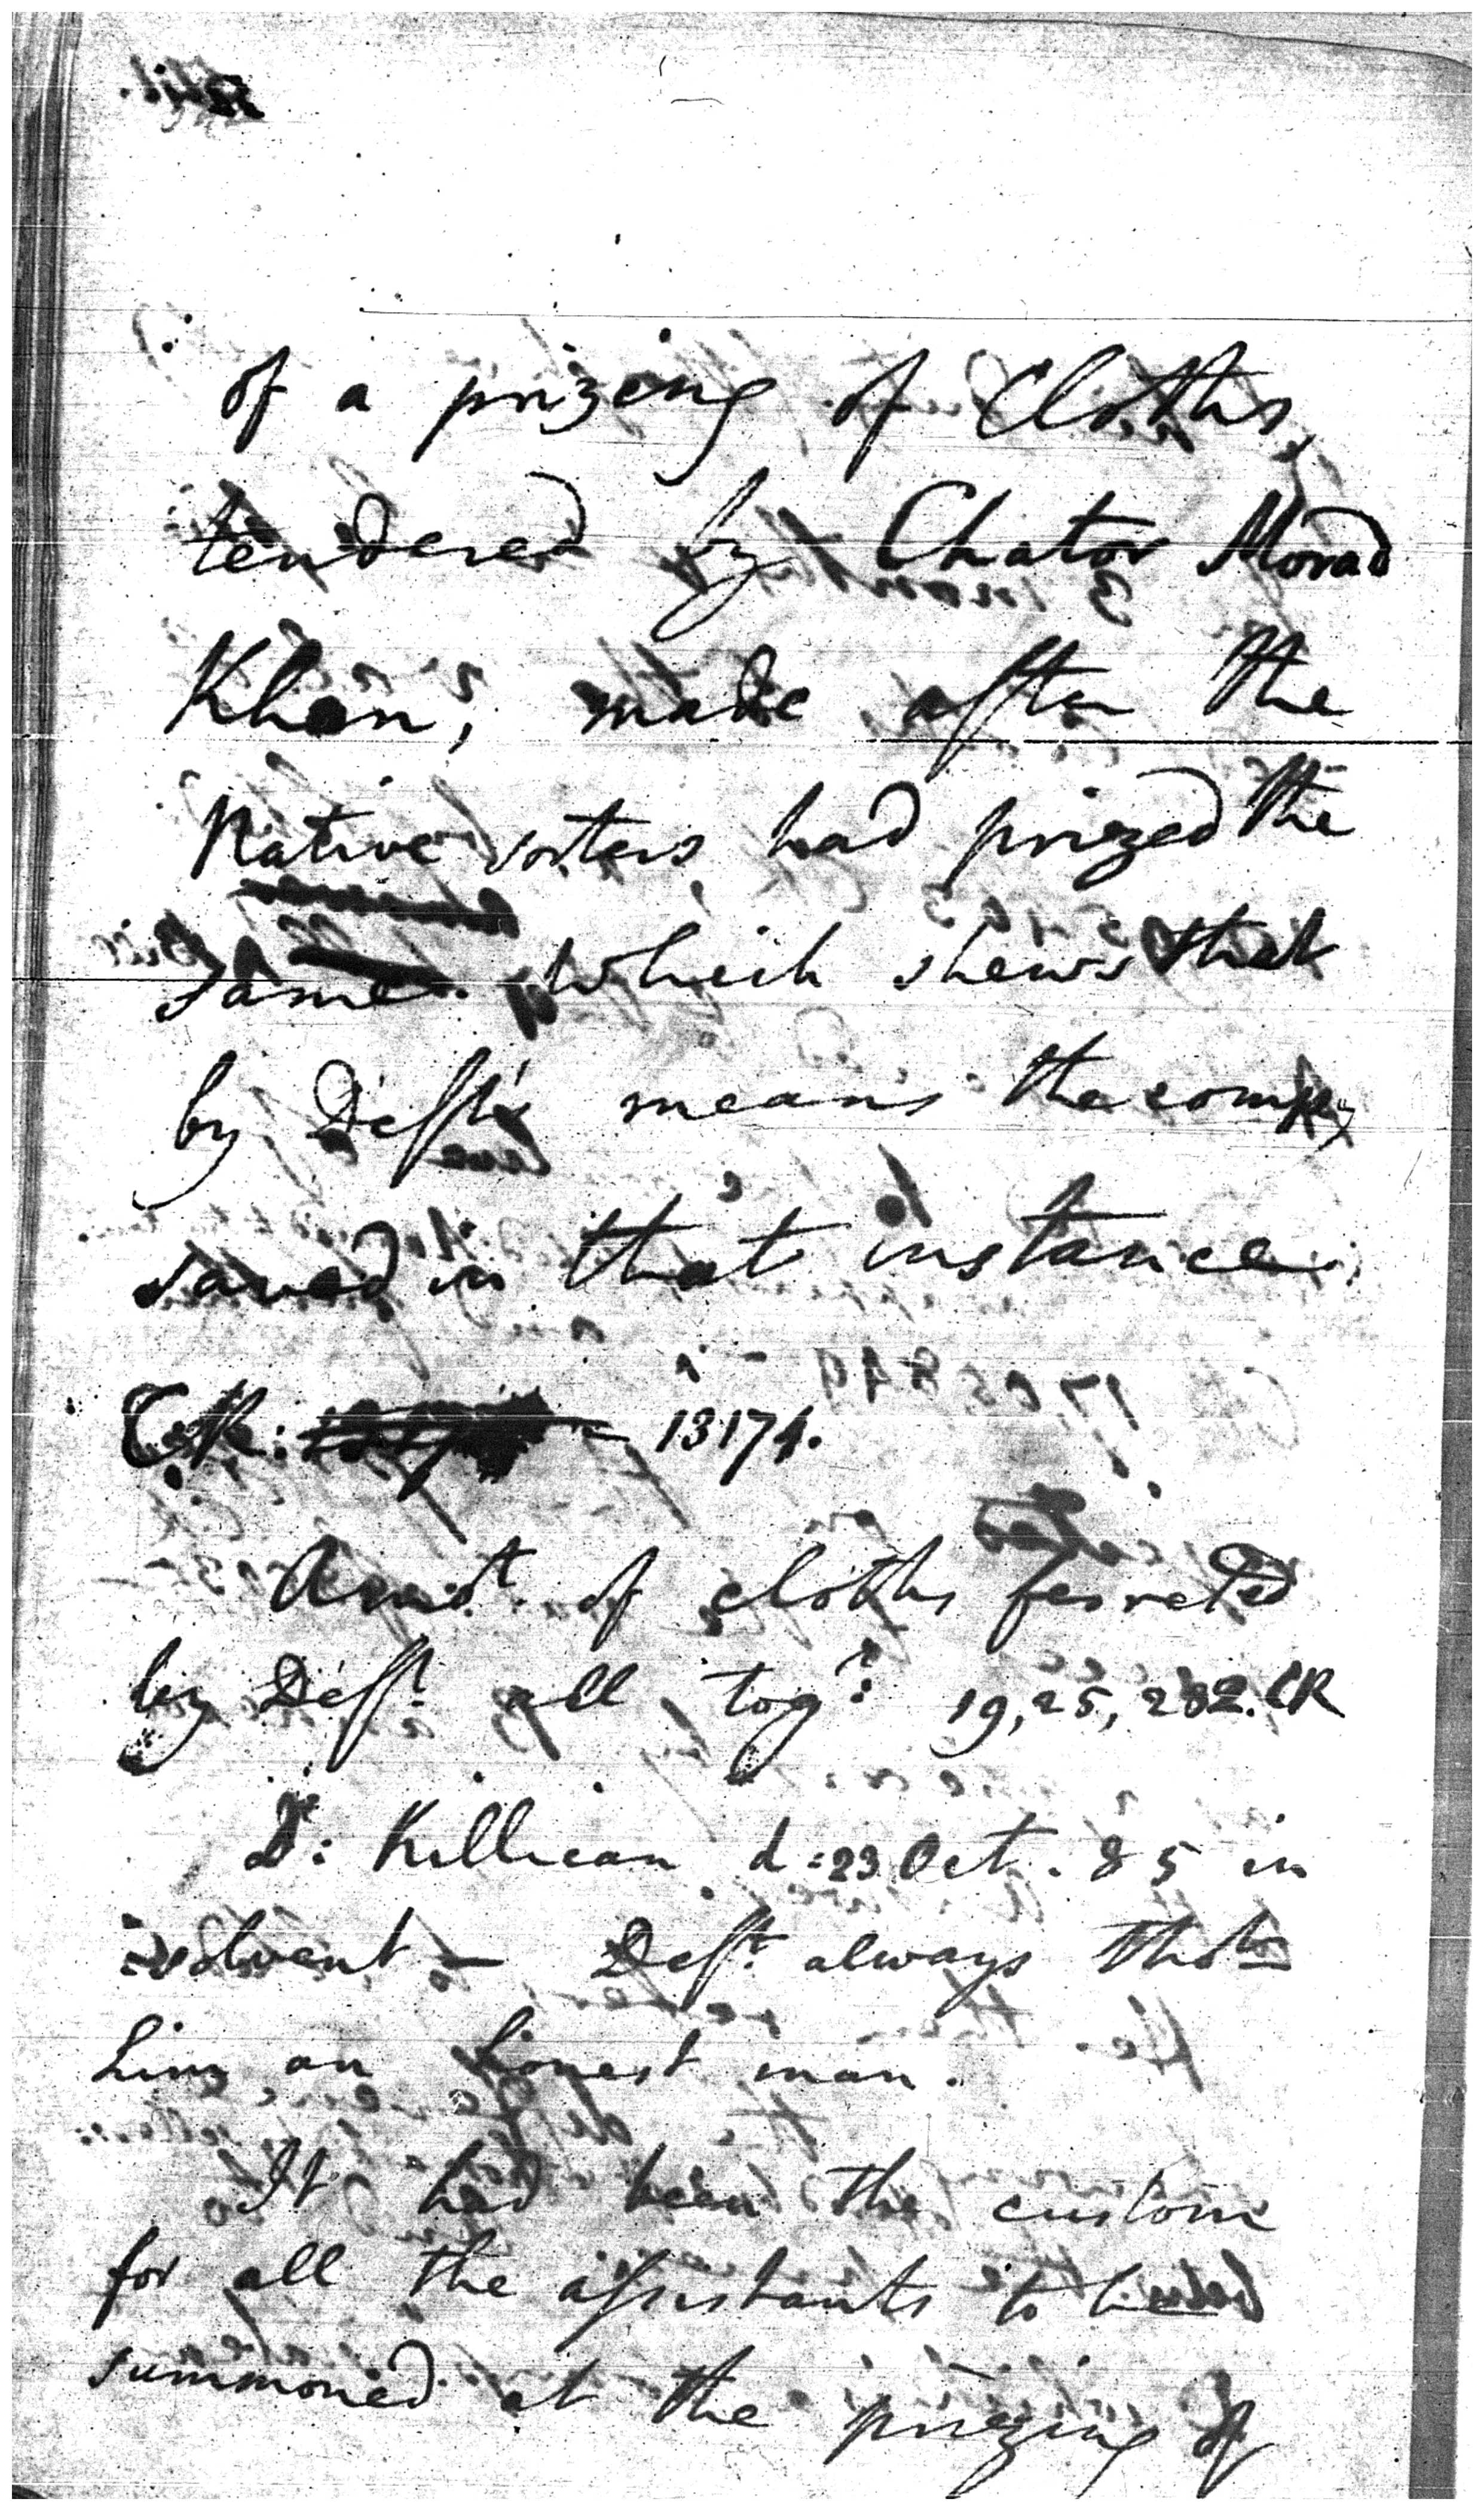 of a prizeing of Cloths,
tendered by Chator Morad
Khan, made after the
Native sorters had prized the
Same. Which shews that
by Deft's means the compy
saved in that instance
13174.
Amot. of cloths ferreted
by Deft. all togr. 19,25,282. CR
D: Killican d: 23 Oct. 85 in
solvent – Deft. always tho't
him an honest man.
It had been the custom
for all the assistants to be
summoned at the prizing of